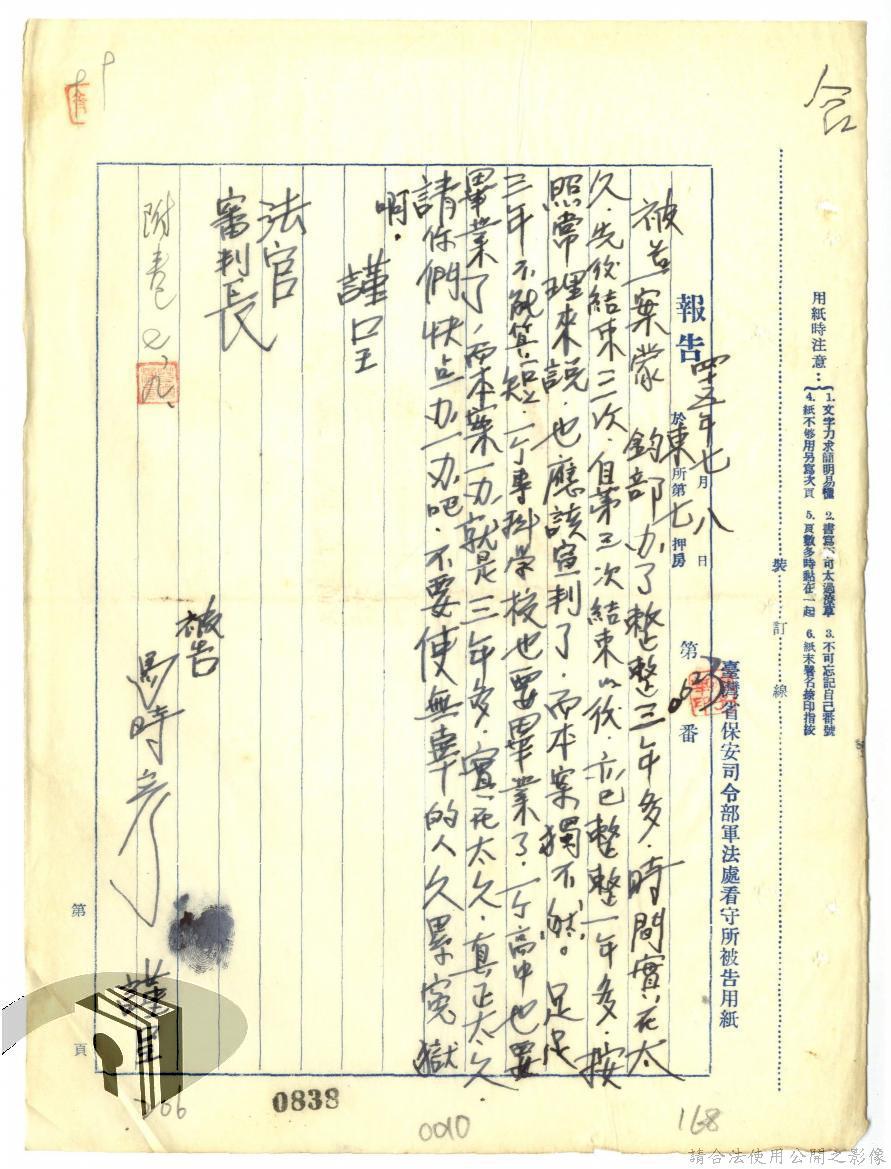 合
用紙時注意：
1. 文字力求簡明易懂 2. 書寫不可太過潦草 3. 不可忘記自己番號
4. 紙不够用另寫次頁 5. 頁數多時黏在一起 6. 紙末署名捺印指紋
裝訂線
臺灣省保安司令部軍法處看守所被告用紙
報告
四十五年七月八日
於東所第七押房
第 番
被告一案蒙 鈞部办了整整三年多．時間實在太
久．先後結束三次．自第三次結束以後．亦已整整一年多．按
照常理來説．也應該宣判了．而本案獨不然。足足
三年不能算短．一个專科学校也要畢業了．一个高中也要
畢業了，而本案一办就是三年多．實在太久．真正太久．
請你們快点办一办吧．不要使無辜的人久累寃獄
啊．
謹呈
法官
審判長
附卷 七、九、
被告
馬時彥
謹呈
第 頁
0838
0010
168
106
請合法使用公開之影像